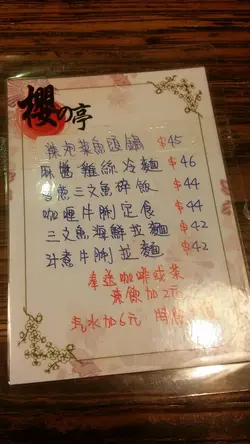 櫻の亭
辣泡菜魚頭鍋 $45
麻醬雞絲冷麵 $46
三文魚碎飯 $44
咖喱牛脷定食 $44
三文魚海鮮拉麵 $42
汁煮牛脷拉麵 $42
奉送咖啡或茶
凍飲加2元
汽水加6元